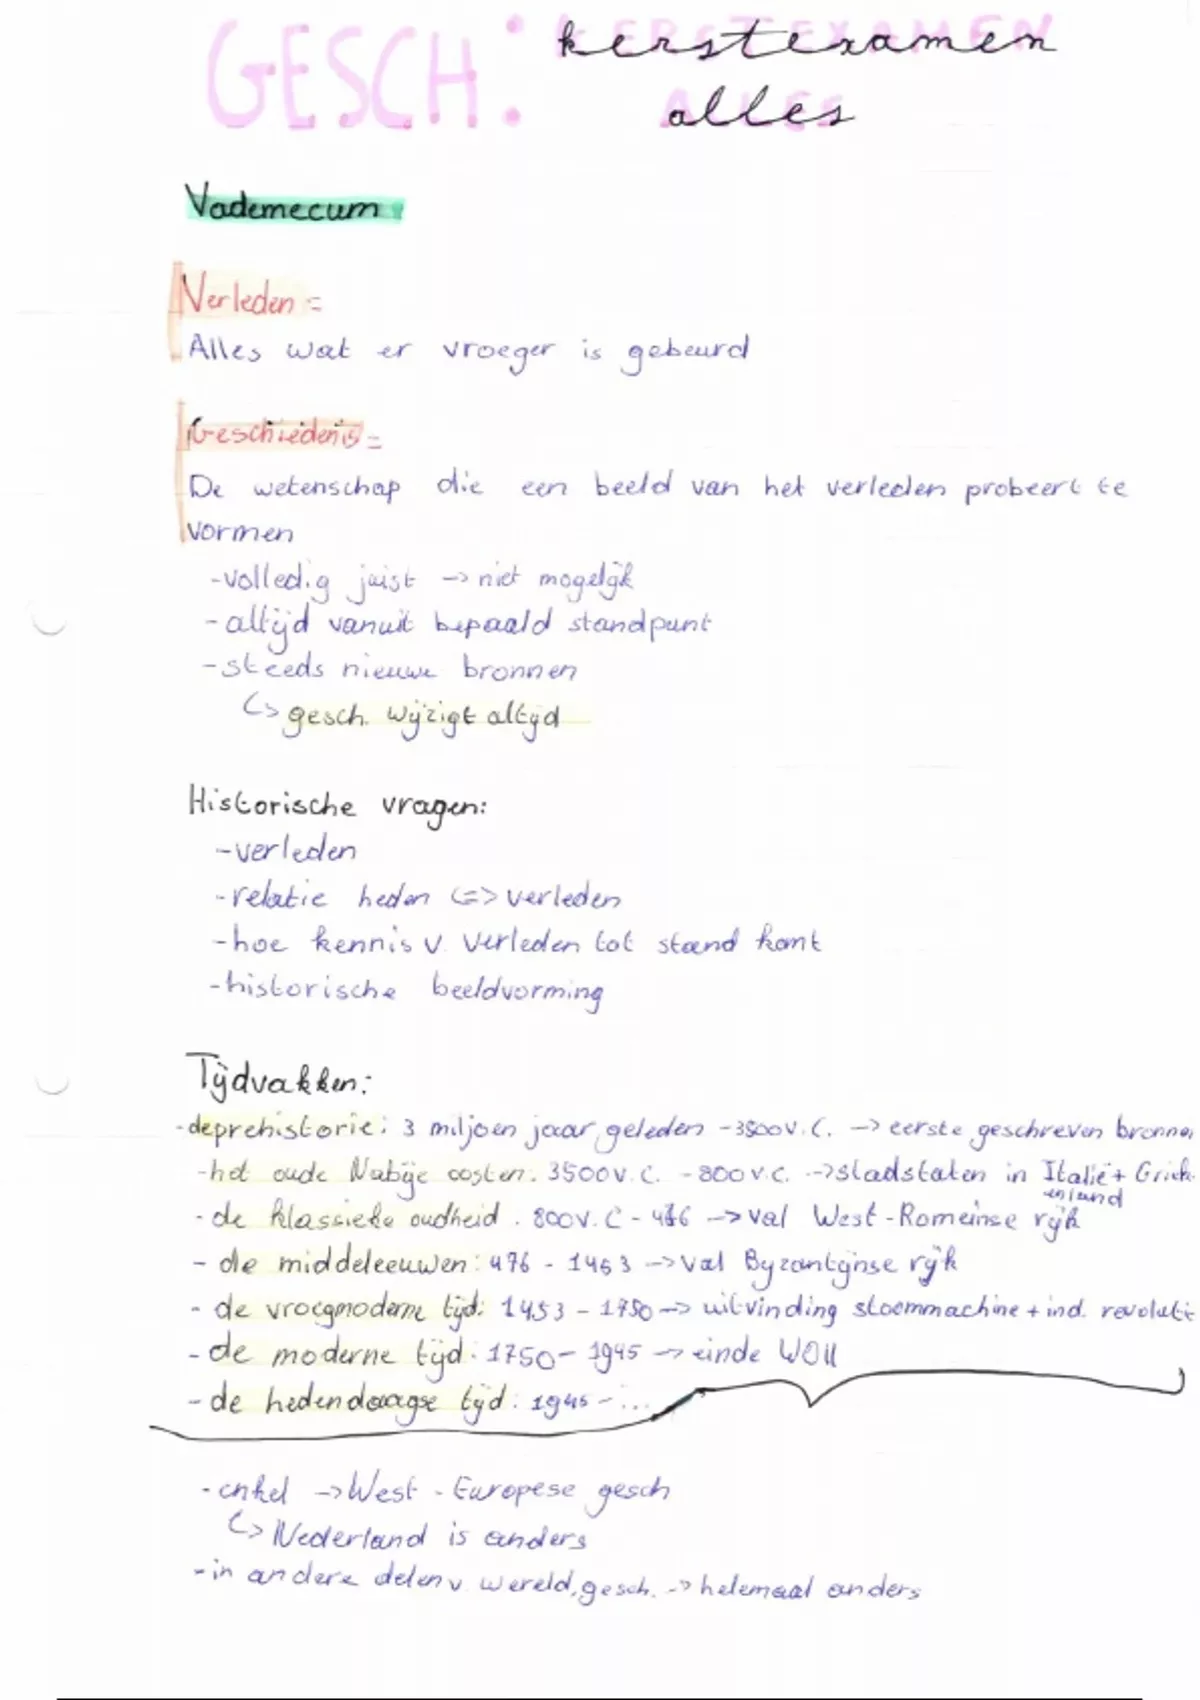 GESCH: kerstexamen
alles
Vademecum
Verleden =
Alles wat er vroeger is gebeurd
Geschiedenis =
De wetenschap die een beeld van het verleden probeert te
vormen
-volledig juist -> niet mogelijk
- altijd vanuit bepaald standpunt
- steeds nieuwe bronnen
↳ gesch. wijzigt altijd
Historische vragen:
-verleden
-relatie heden <=> verleden
-hoe kennis v. verleden tot stand komt
-historische beeldvorming
Tijdvakken:
-deprehistorie: 3 miljoen jaar geleden -3500v.C. -> eerste geschreven bronnen
-het oude Nabije oosten: 3500v.C. -800v.C. ->stadstaten in Italië + Griek
enland
- de klassieke oudheid. 800v.C - 476 -> val West-Romeinse rijk
- die middeleeuwen: 476 - 1453 -> val Byzantijnse rijk
- de vroegmoderne tijd: 1453 - 1750 -> uitvinding stoommachine + ind. revolutie
- de moderne tijd: 1750 - 1945 -> einde WOII
- de hedendaagse tijd: 1945 - ...
- enkel -> West - Europese gesch
↳ Nederland is anders
- in andere delen v. wereld, gesch. -> helemaal anders